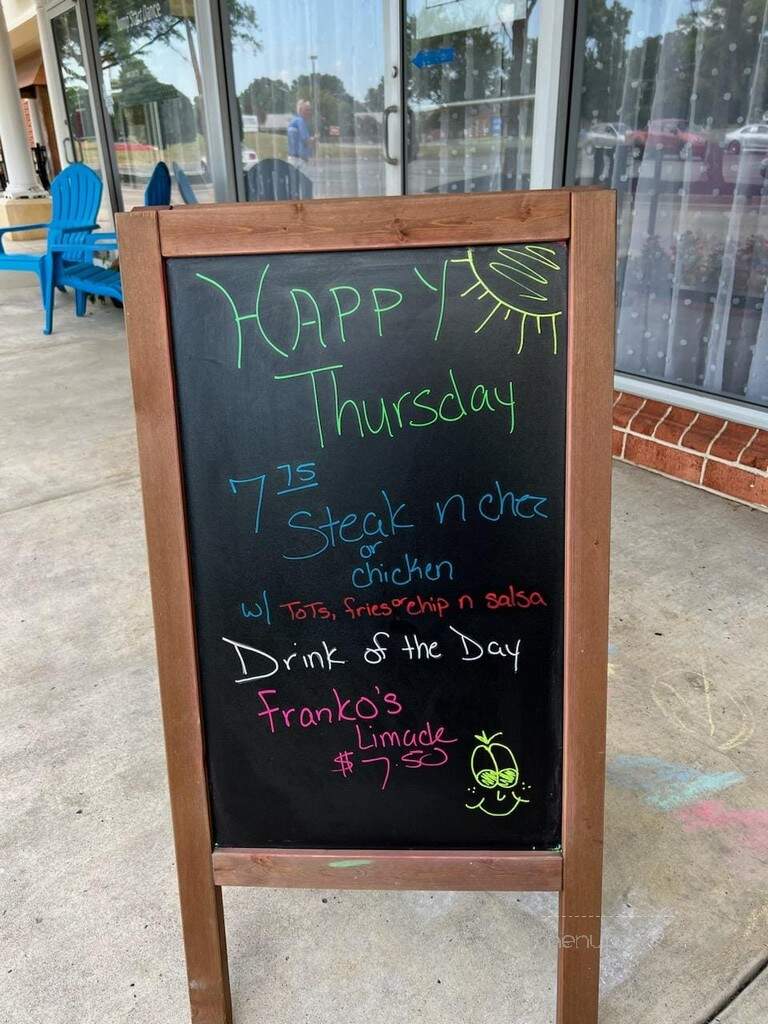 HAPPY
Thursday
7 75
Steak n chez
or
chicken
w/ TOTS, fries or chip n salsa
Drink of the Day
Franko's
Limade
$7.50
menu